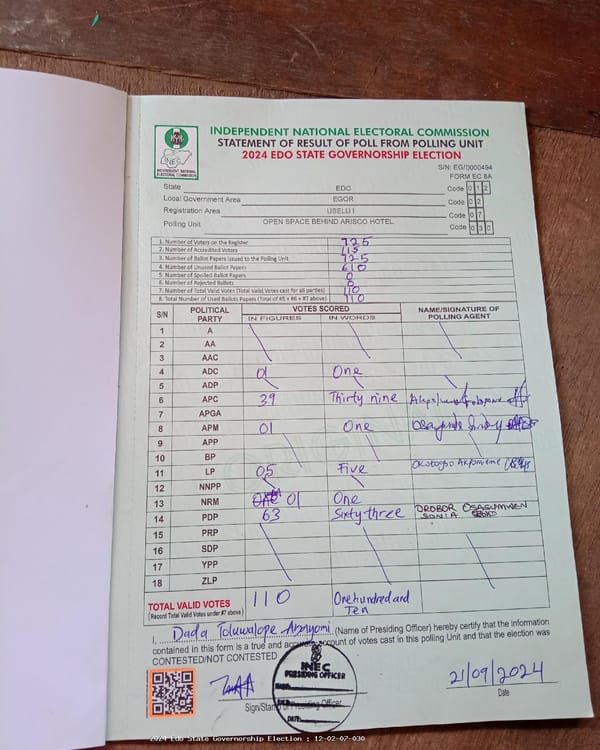 INDEPENDENT NATIONAL ELECTORAL COMMISSION
STATEMENT OF RESULT OF POLL FROM POLLING UNIT
2024 EDO STATE GOVERNORSHIP ELECTION
INEC
INDEPENDENT NATIONAL ELECTORAL COMMISSION
S/N: EG/0000494
FORM EC 8A
State EDO Code 0 1 2
Local Government Area EGOR Code 0 2
Registration Area USELU I Code 0 7
Polling Unit OPEN SPACE BEHIND ARISCO HOTEL Code 0 3 0
1. Number of Voters on the Register 725
2. Number of Accredited Voters 115
3. Number of Ballot Papers Issued to the Polling Unit 725
4. Number of Unused Ballot Papers 610
5. Number of Spoiled Ballot Papers 0
6. Number of Rejected Ballots 0
7. Number of Total Valid Votes (Total Valid Votes cast for all parties) 110
8. Total Number of Used Ballots Papers (Total of #5 + #6 + #7 above) 110
S/N POLITICAL PARTY VOTES SCORED NAME/SIGNATURE OF POLLING AGENT
IN FIGURES IN WORDS
1 A
2 AA
3 AAC
4 ADC 01 One
5 ADP
6 APC 39 Thirty nine
7 APGA
8 APM 01 One
9 APP
10 BP
11 LP 05 Five
12 NNPP
13 NRM 01 One
14 PDP 63 Sixty-three OROBOR OSAGUMWEN SONIA
15 PRP
16 SDP
17 YPP
18 ZLP
TOTAL VALID VOTES 110 One hundred and Ten
(Record Total Valid Votes under #7 above)
I, Dada Toluwalope Abayomi (Name of Presiding Officer) hereby certify that the information
contained in this form is a true and accurate account of votes cast in this polling Unit and that the election was
CONTESTED/NOT CONTESTED
INEC
PRESIDING OFFICER
DATE:
21/09/2024
Sign/Stamp of Presiding Officer Date
2024 Edo State Governorship Election : 12-02-07-030